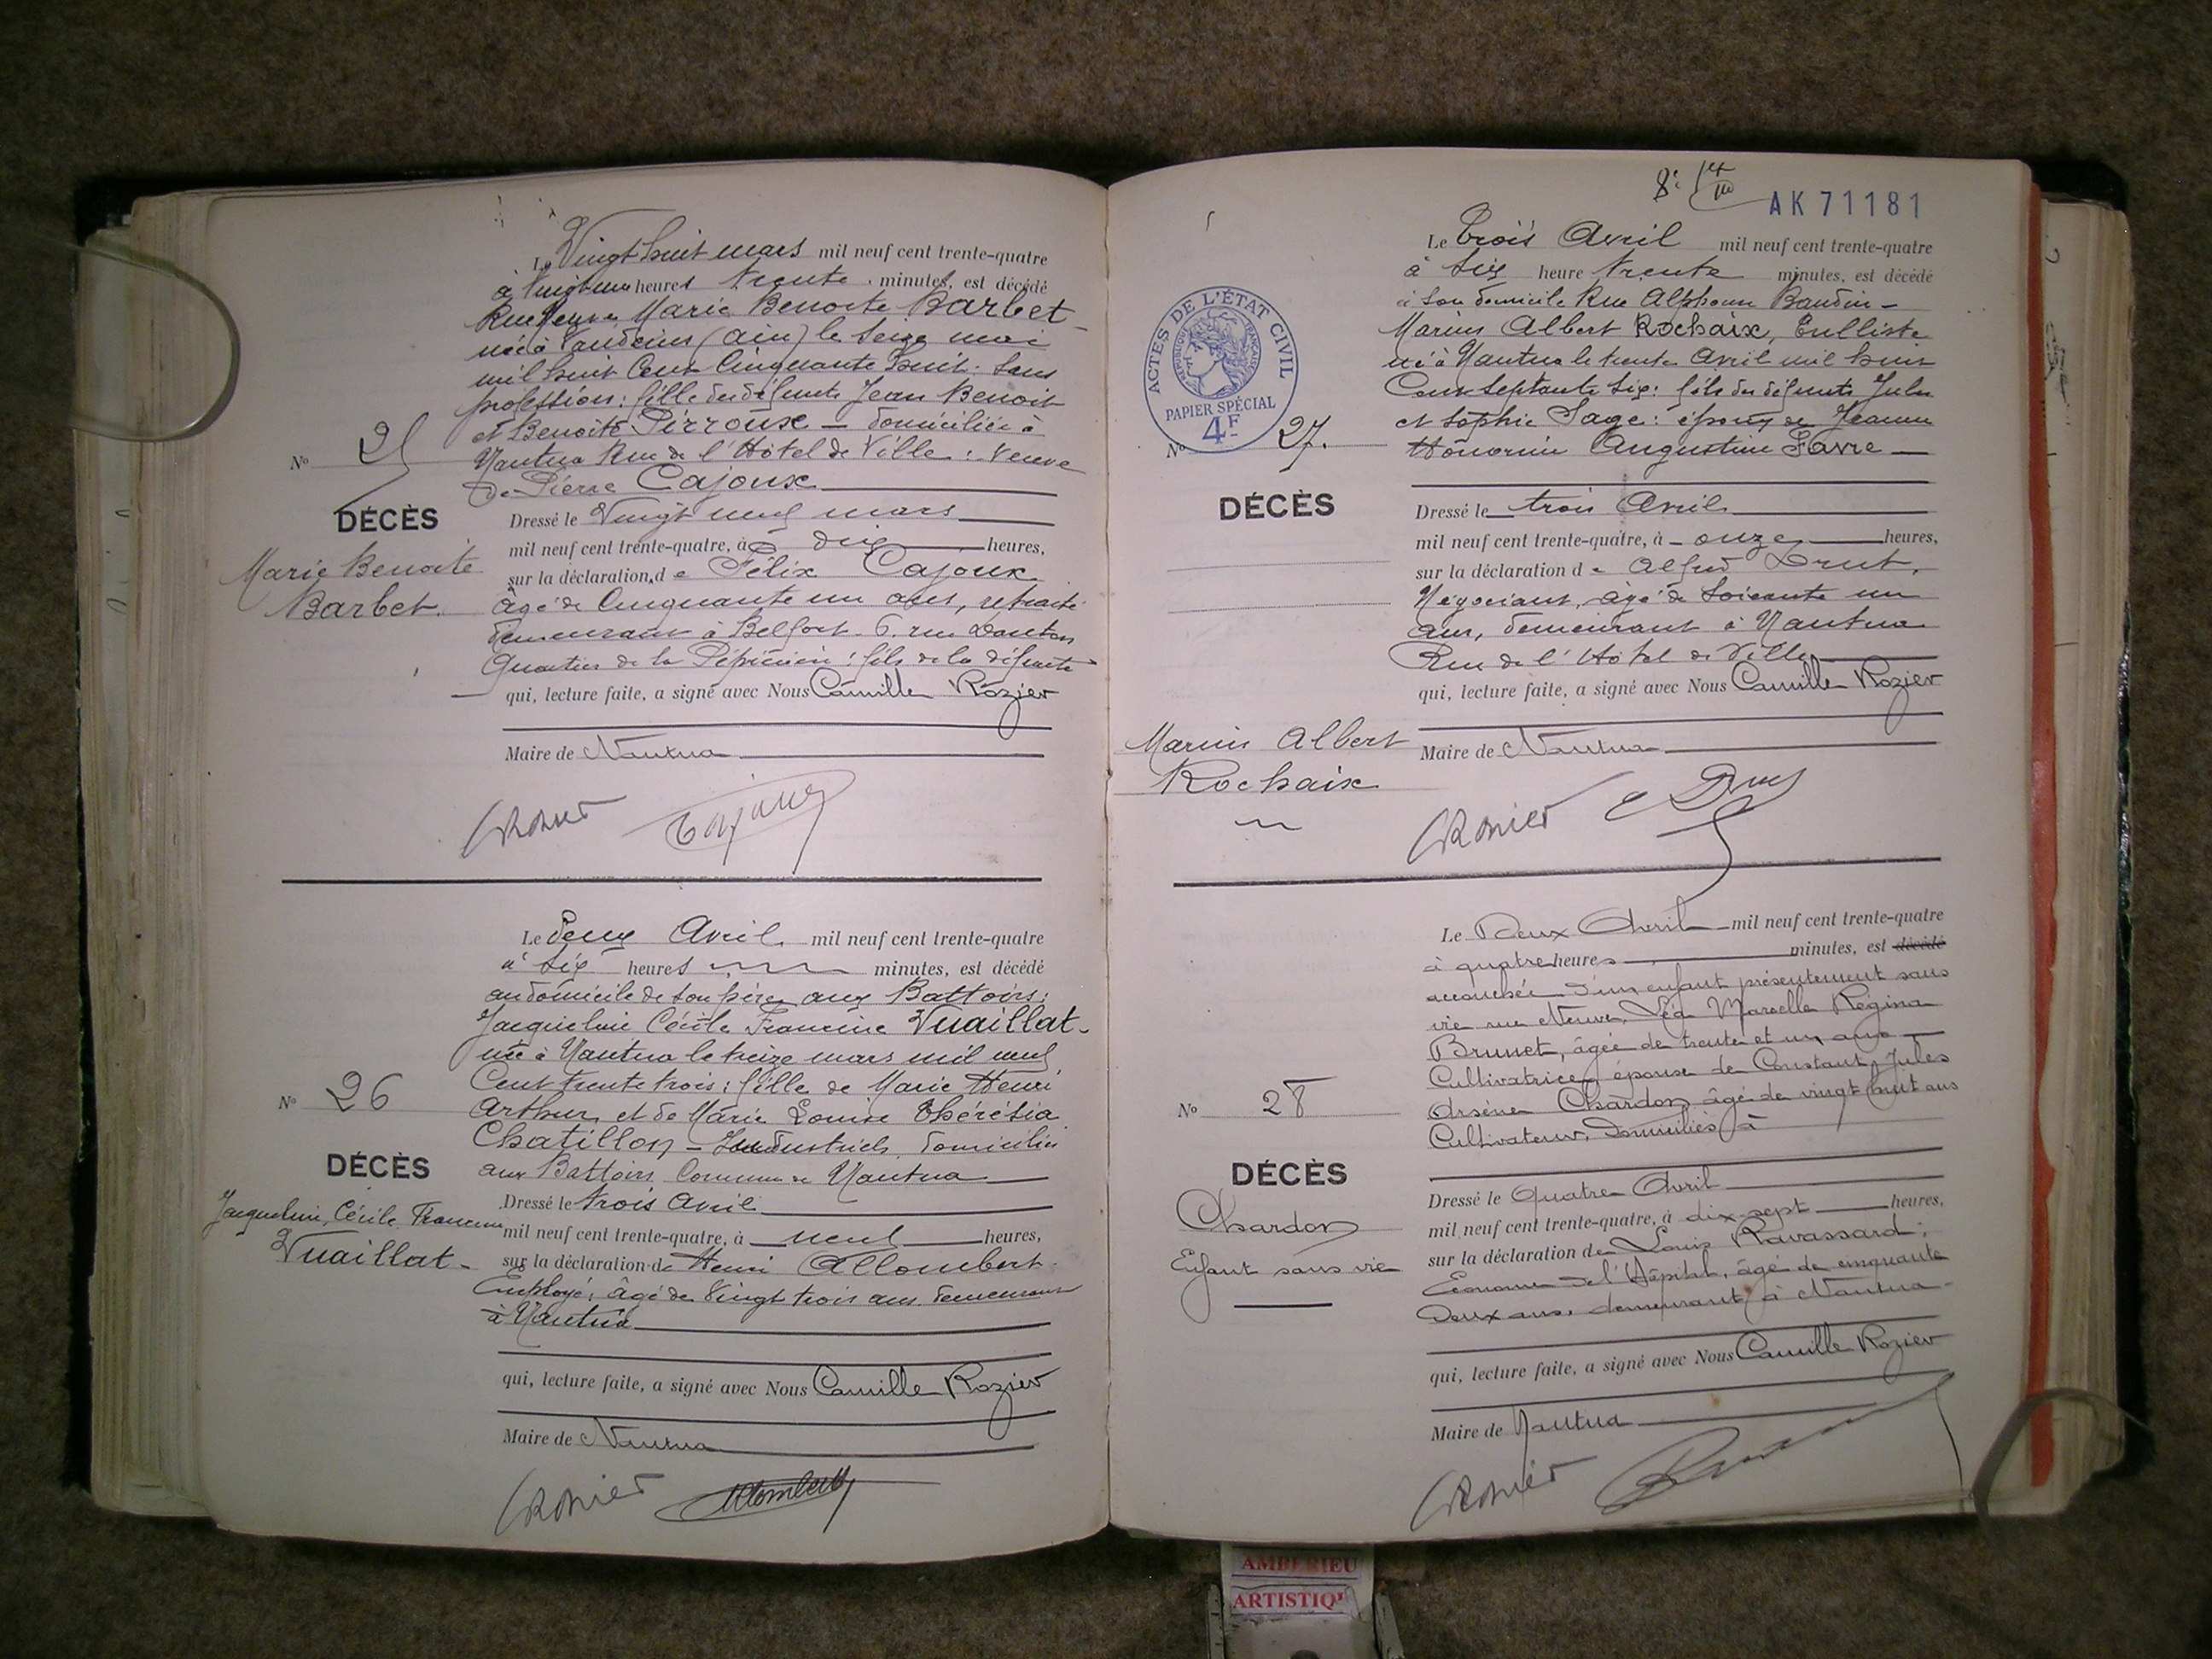 Le Vingt huit mars mil neuf cent trente-quatre
à Vingt une heures trente minutes, est décédé
Rue Neuve Marie Benoite Barbet
née à (Ain) le seize mai
mil huit cent cinquante huit: sans
profession: fille des défunts Jean Benoit
et Benoite Pirroux — domiciliée à
Nantua Rue de l'Hôtel de Ville: Veuve
de Pierre Cajoux
No 25
DÉCÈS
Marie Benoite
Barbet.
Dressé le Vingt neuf mars
mil neuf cent trente-quatre, à dix heures,
sur la déclaration de Félix Cajoux
âgé de Cinquante un ans, retraité
demeurant à Belfort. 6. rue Danton
Quartier de la Pépinière: fils de la défunte
qui, lecture faite, a signé avec Nous Camille Rozier
Maire de Nantua
CRozier Cajoux
Le deux Avril mil neuf cent trente-quatre
à six heures minutes, est décédé
au domicile de son père aux Battoirs:
Jacqueline Cécile Francine Vuaillat
née à Nantua le treize mars mil neuf
Cent trente trois: fille de Marie Henri
Arthur et de Marie Louise Thérésia
Chatillon — Industriels, domiciliés
aux Battoirs Commune de Nantua
No 26
DÉCÈS
Jacqueline, Cécile Francine
Vuaillat —
Dressé le trois Avril
mil neuf cent trente-quatre, à neuf heures,
sur la déclaration de Henri Allombert
Employé, âgé de Vingt trois ans demeurant
à Nantua
qui, lecture faite, a signé avec Nous Camille Rozier
Maire de Nantua
CRozier Allombert
8e
AK 71181
Le trois Avril mil neuf cent trente-quatre
à six heure trente minutes, est décédé
à son domicile Rue Alphonse Baudin —
Marius Albert Rochaix, Tulliste
né à Nantua le trente Avril mil huit
Cent septante six: fils des défunts Jules
et Sophie Sage: époux de Jeanne
Honorine Augustine Favre —
ACTES DE L'ÉTAT CIVIL
RÉPUBLIQUE FRANÇAISE
PAPIER SPÉCIAL
4F
No 27.
DÉCÈS
Marius Albert
Rochaix
Dressé le trois Avril
mil neuf cent trente-quatre, à onze heures,
sur la déclaration de Alfred Drut,
Négociant, âgé de soixante un
ans, demeurant à Nantua
Rue de l'Hôtel de Ville
qui, lecture faite, a signé avec Nous Camille Rozier
Maire de Nantua
CRozier Drut
Le Deux Avril mil neuf cent trente-quatre
à quatre heures minutes, est décédé
accouchée d'un enfant présentement sans
vie rue Neuve, Léa Marcelle Régina
Brunet, âgée de trente et un ans
Cultivatrice, épouse de Constant Jules
Arsène Chardon âgé de vingt huit ans
Cultivateur, Domiciliés à
No 28
DÉCÈS
Chardon
Enfant sans vie
Dressé le Quatre Avril
mil neuf cent trente-quatre, à dix-sept heures,
sur la déclaration de Louis Ravassard,
Econome de l'Hôpital, âgé de cinquante
Deux ans, demeurant à Nantua
qui, lecture faite, a signé avec Nous Camille Rozier
Maire de Nantua
CRozier
AMBERIEU
ARTISTIQ